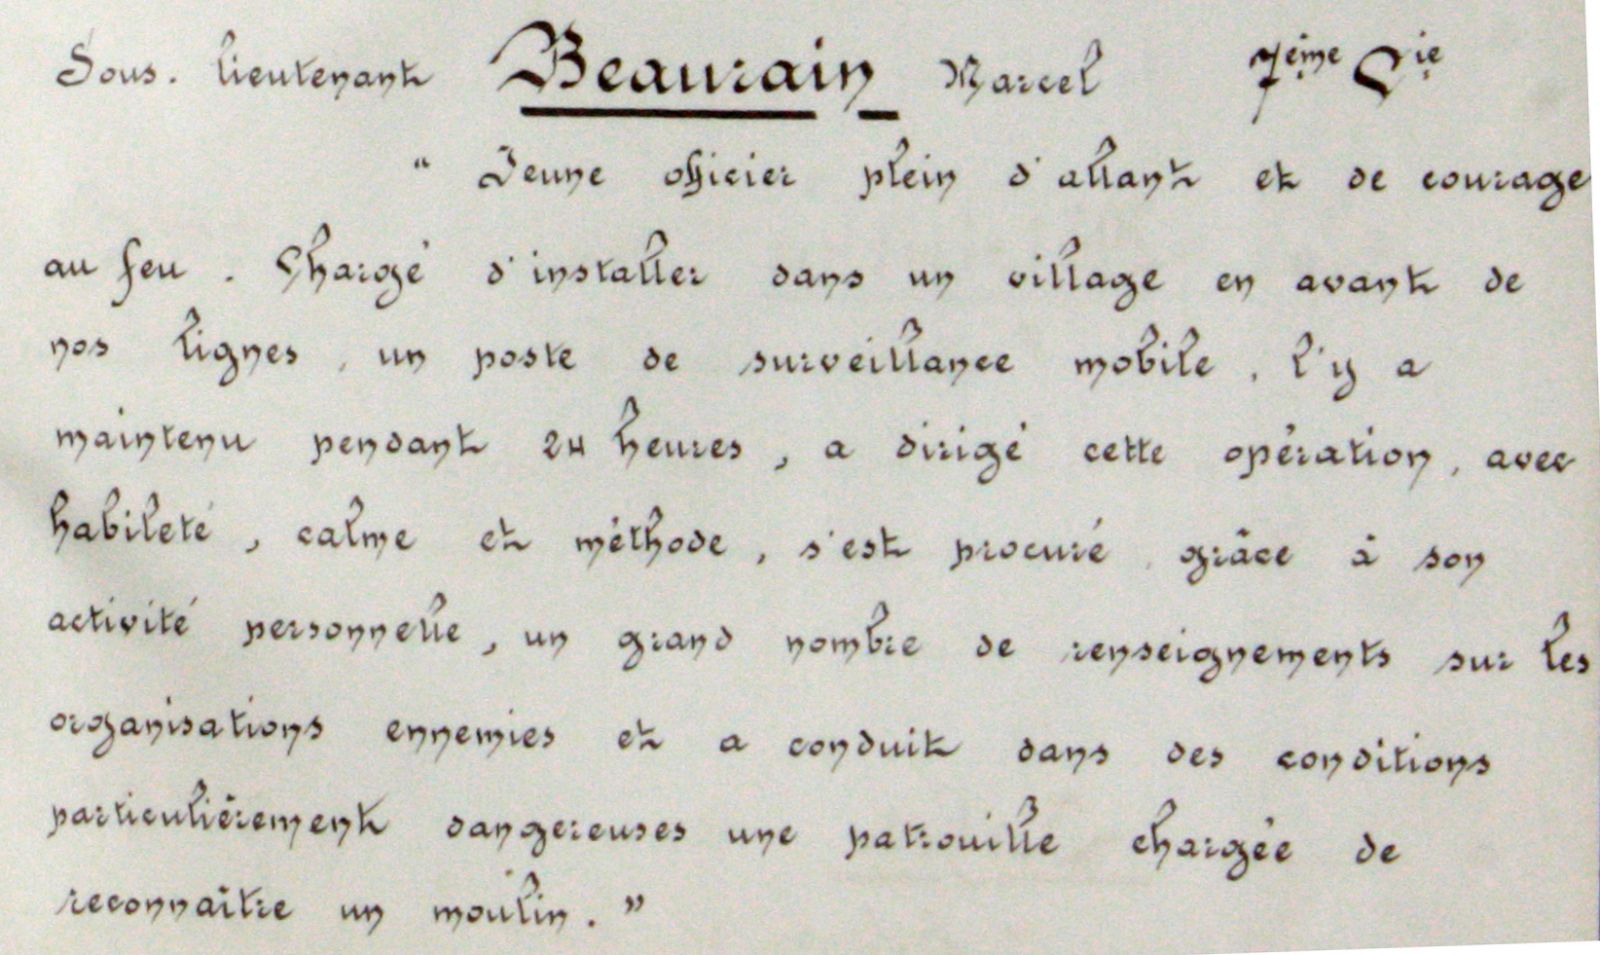 Sous. lieutenant Beaurain Marcel 7ème Cie
" Jeune officier plein d'allant et de courage
au feu. Chargé d'installer dans un village en avant de
nos lignes, un poste de surveillance mobile, l'y a
maintenu pendant 24 heures, a dirigé cette opération, avec
habileté, calme et méthode, s'est procuré, grâce à son
activité personnelle, un grand nombre de renseignements sur les
organisations ennemies et a conduit dans des conditions
particulièrement dangereuses une patrouille chargée de
reconnaître un moulin."